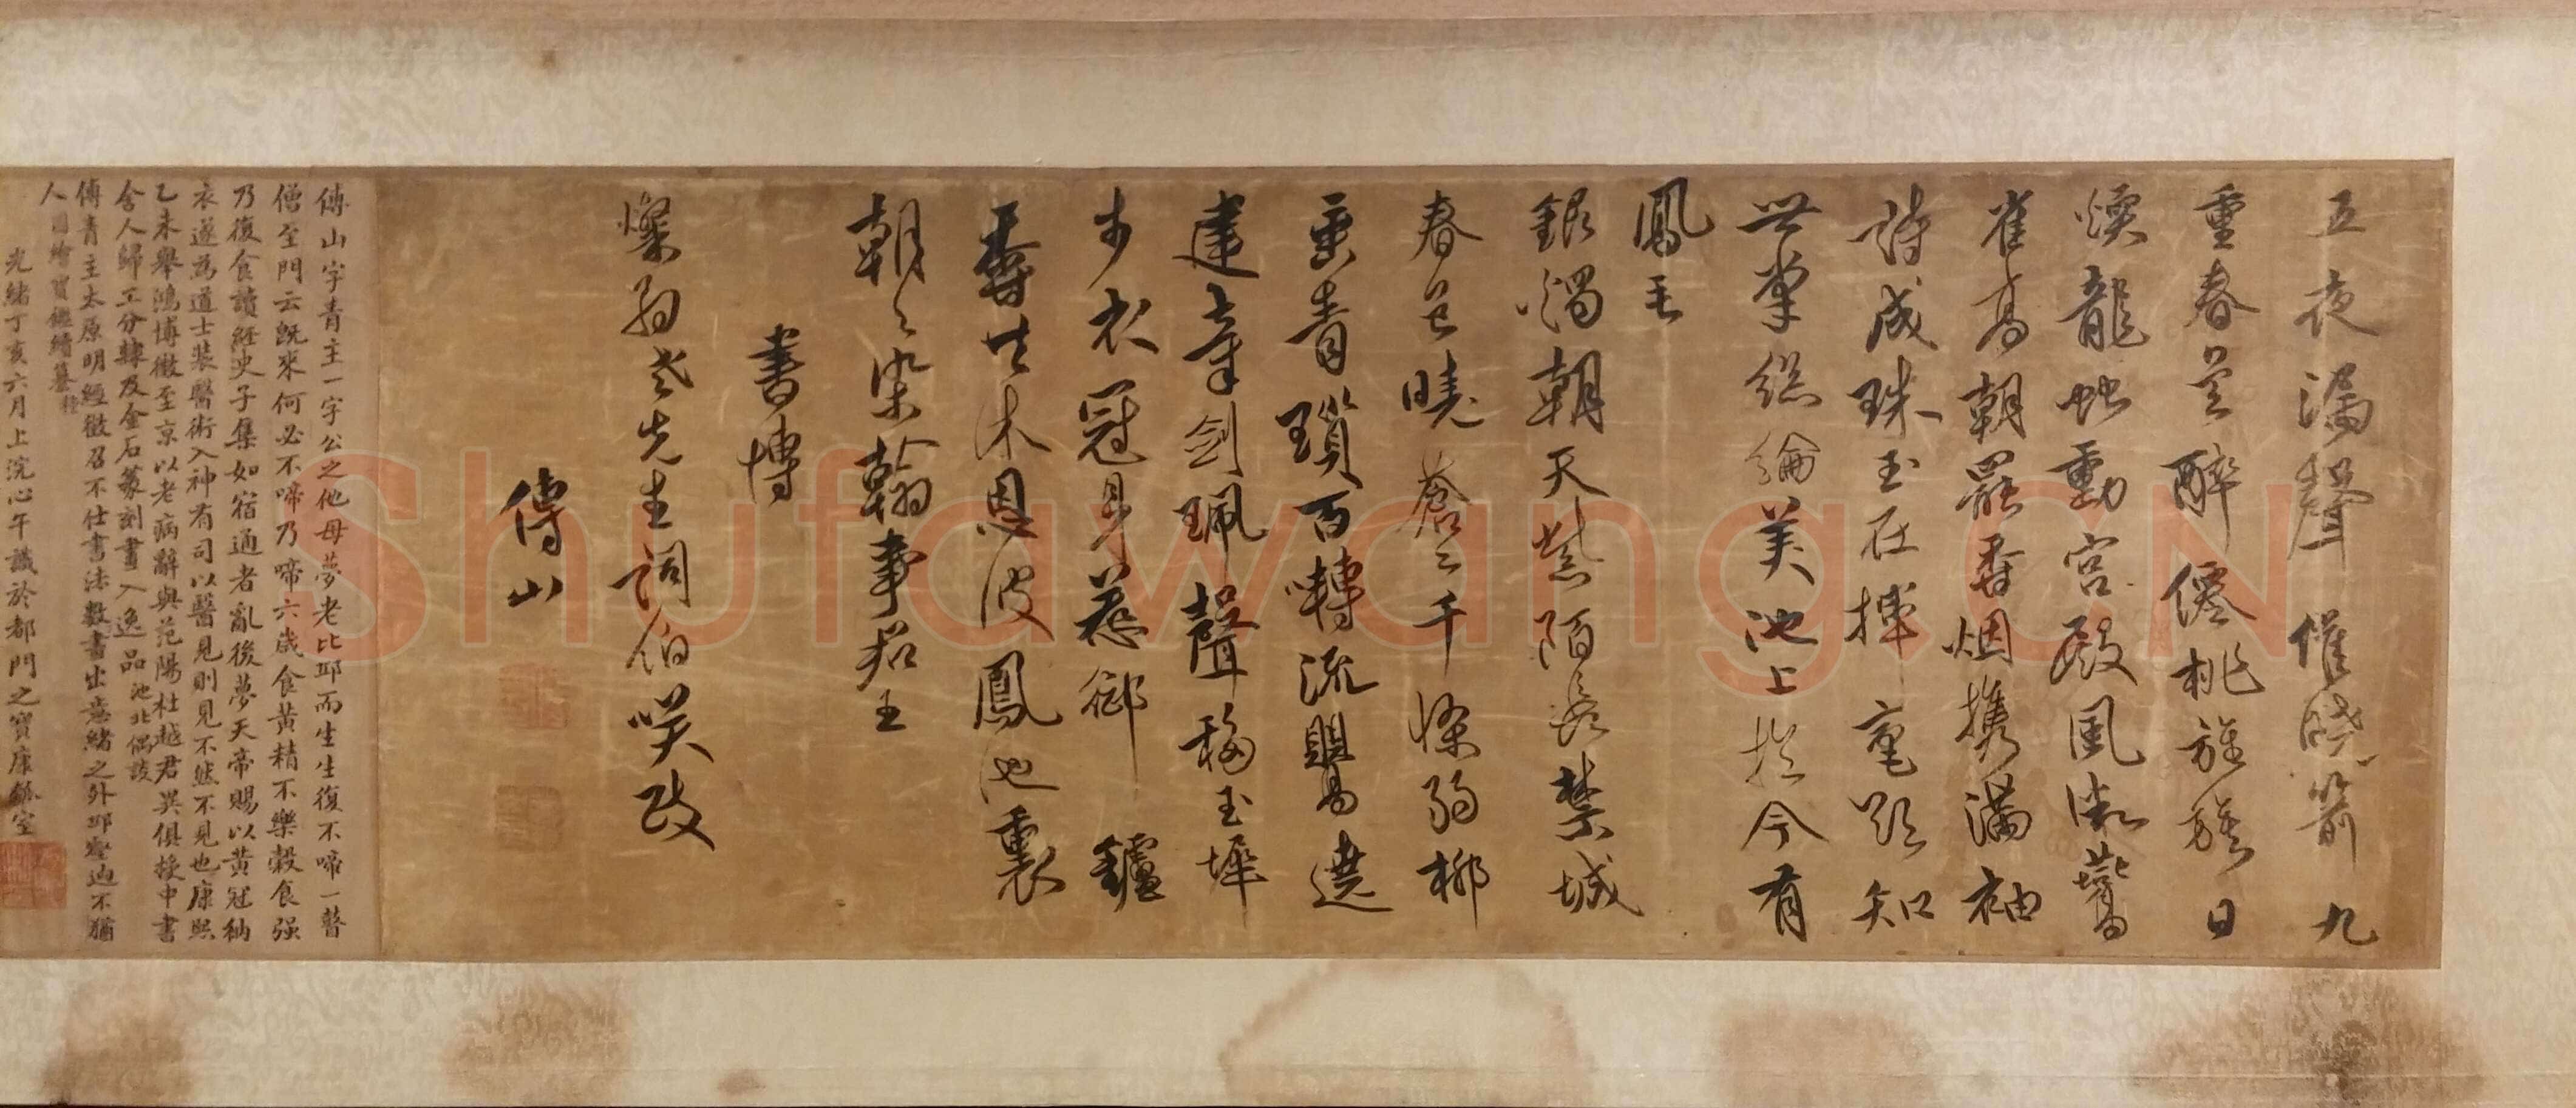 五夜漏聲催曉箭九
重春色醉僊桃旌旂日
煖龍蛇動宮殿風微鷰
雀高朝罷香烟携滿袖
詩成珠玉在揮毫欲知
世掌絲綸美池上於今有
鳳毛
銀燭朝天紫陌長禁城
春色曉蒼〻千條弱柳
垂青瑣百囀流鶯遶
建章劍珮聲移玉墀
步衣冠身惹御鑪
香共沐恩波鳳池裏
朝〻染翰事君王
書博
燦翁老先生詞伯咲政
傅山
傅山字青主一字公之他母夢老比邱而生生復不啼一瞽
僧至門云既來何必不啼乃啼六歲食黃精不樂穀食强
乃復食讀經史子集如宿通者亂後夢天帝賜以黃冠衲
衣遂為道士裝醫術入神有司以醫見則見不然不見也康熙
乙未舉鴻博徵至京以老病辭與范陽杜越君異俱授中書
舍人歸工分隸及金石篆刻畫入逸品池北偶談
傅青主太原明經徵召不仕書法數書出意緒之外邱壑迥不猶
人圖繪寶鑑續纂
光緒丁亥六月上浣心午識於都門之寶康鉥室
Shufawang.CN